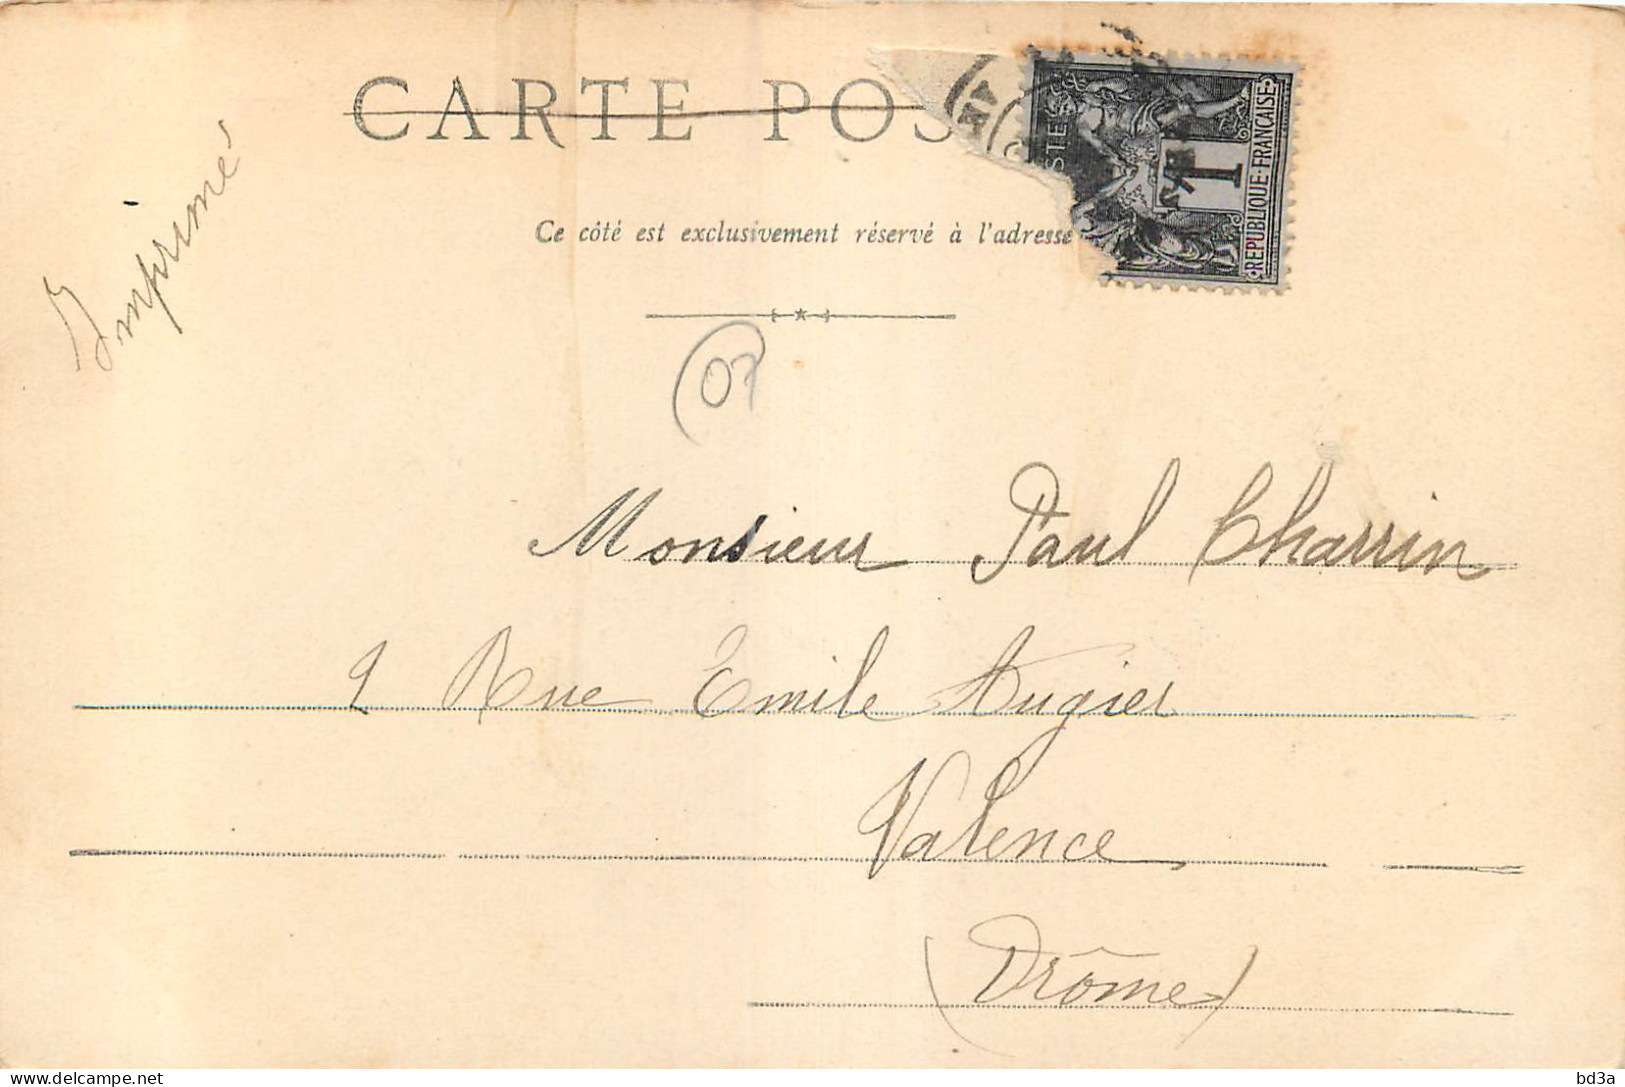 CARTE POS
Imprimé
Ce côté est exclusivement réservé à l'adresse
STES
1
REPUBLIQUE·FRANCAISE
07
Monsieur Paul Charrin
2 Rue Emile Augier
Valence
(Drôme)
delcampe.net
bd3a